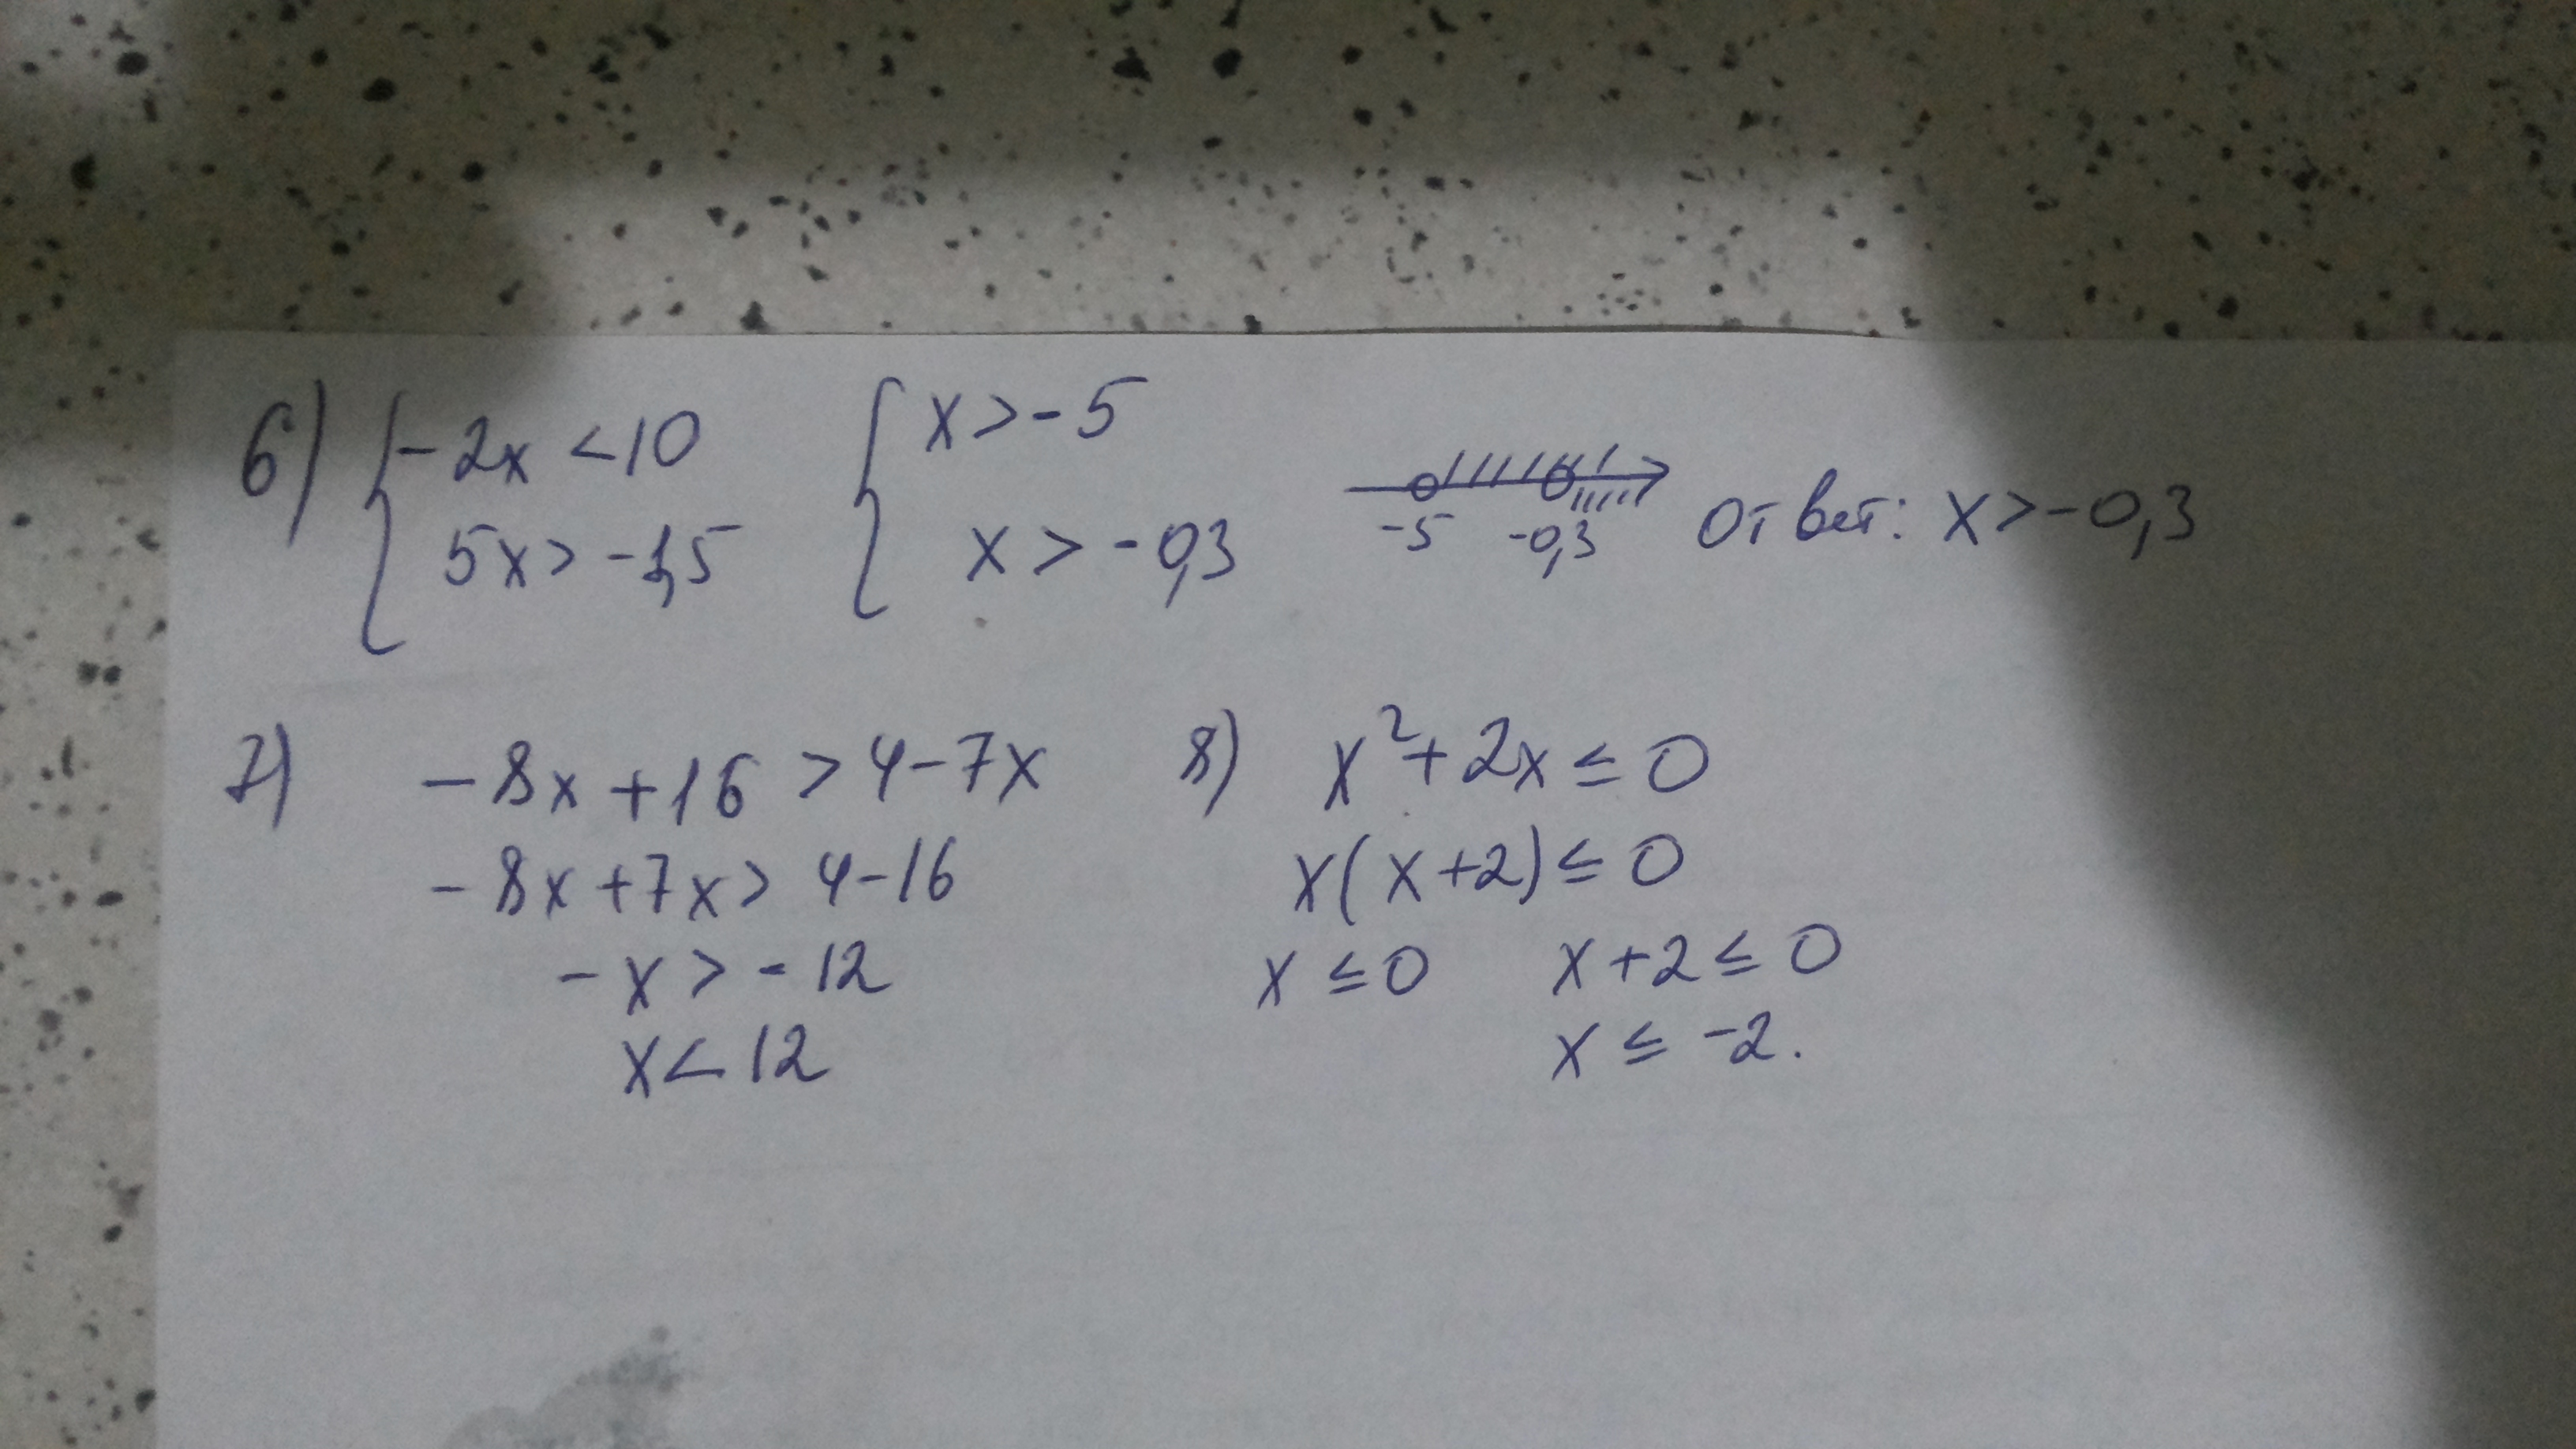 6) { -2x < 10 { x > -5
5x > -1,5 x > -0,3 -5 -0,3 Ответ: x > -0,3
7) -8x + 16 > 4 - 7x
-8x + 7x > 4 - 16
-x > -12
x < 12
8) x² + 2x ≤ 0
x(x+2) ≤ 0
x ≤ 0 x + 2 ≤ 0
x ≤ -2.